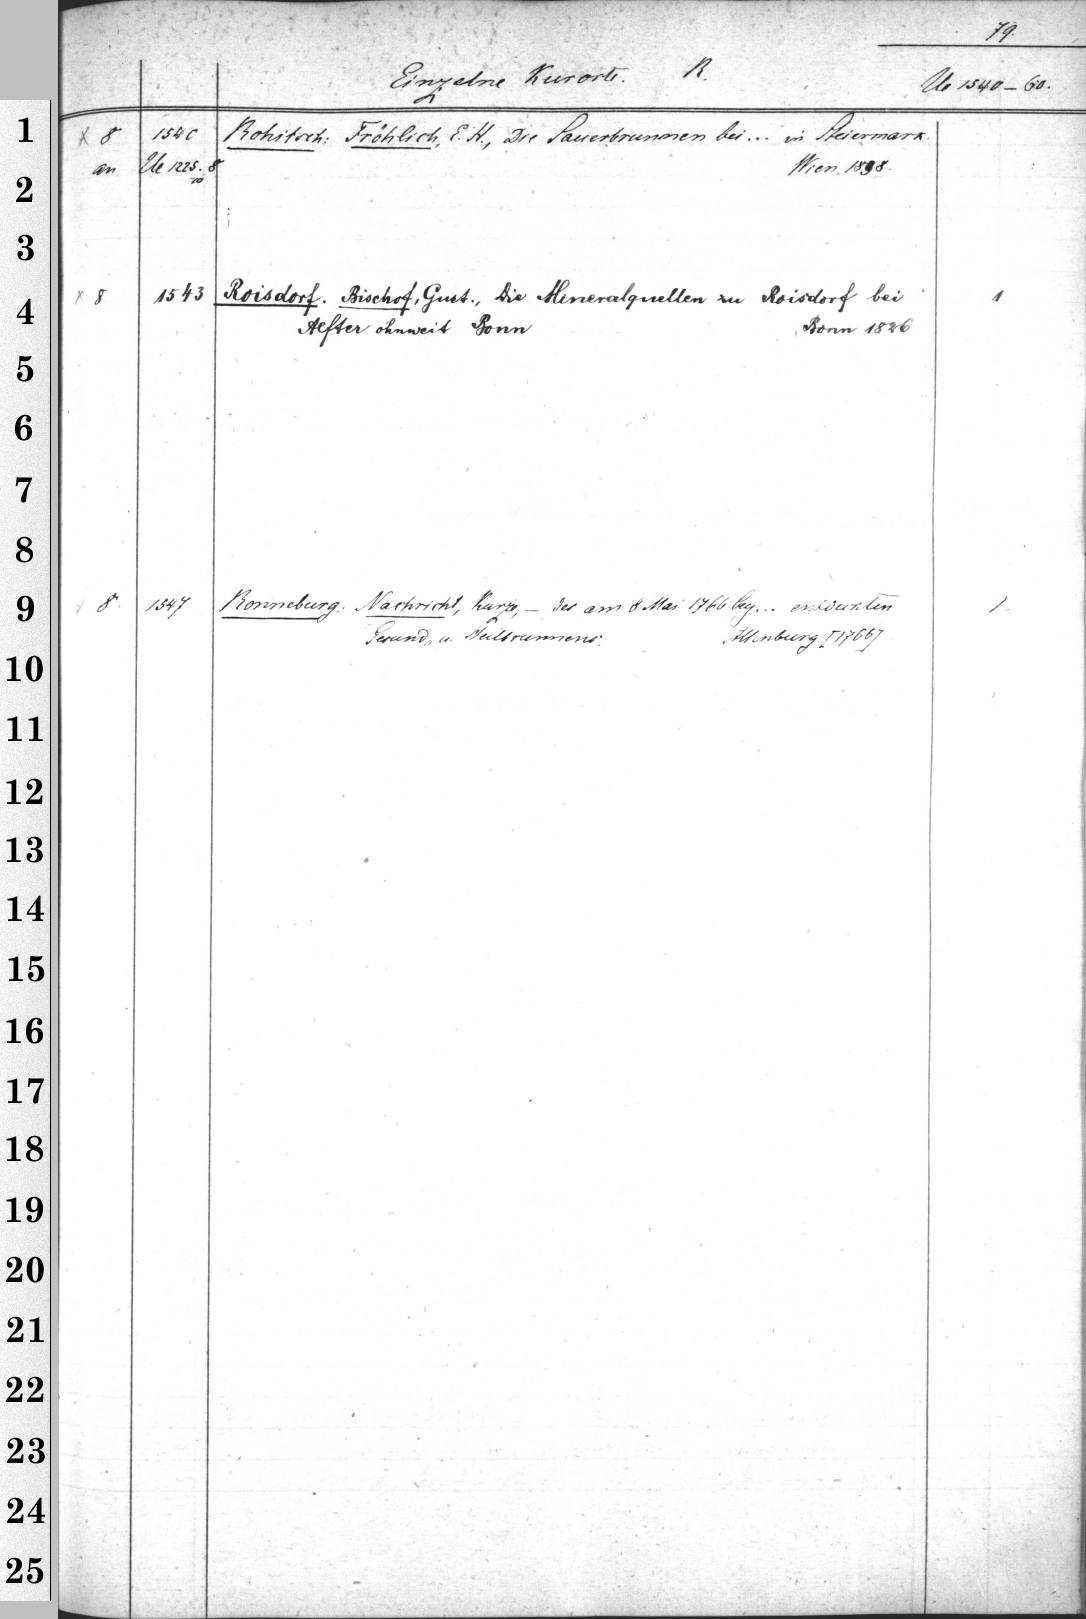 79.
Einzelne Kurorte. R. Ue 1540–60.
1 x 8 1540 Rohitsch: Fröhlich, E. H., Die Sauerbrunnen bei... in Steiermark.
an Ue 1225. 8 Wien. 1838.
10
2
3
x 8 1543 Roisdorf. Bischof, Gust., Die Mineralquellen zu Roisdorf bei 1
4 Alfter ohnweit Bonn Bonn 1826
5
6
7
8
9 8. 1547 Ronneburg. Nachricht, Kurze, – des am 8 Mai 1766 bey... entdeckten 1.
Gesund- u. Heilbrunnens. Altenburg [1766]
10
11
12
13
14
15
16
17
18
19
20
21
22
23
24
25